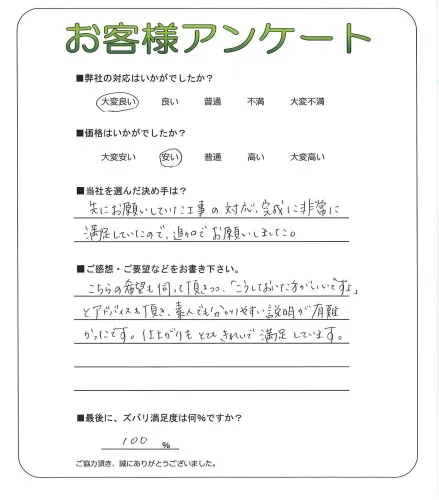 お客様アンケート
■弊社の対応はいかがでしたか？
大変良い 良い 普通 不満 大変不満
■価格はいかがでしたか？
大変安い 安い 普通 高い 大変高い
■当社を選んだ決め手は？
先にお願いしていた工事の対応、完成に非常に
満足していたので、追加でお願いしました。
■ご感想・ご要望などをお書き下さい。
こちらの希望も伺って頂きつつ、「こうしておいた方がいいですよ」
とアドバイスも頂き、素人でも分かりやすい説明が有難
かったです。仕上がりもとてもきれいで満足しています。
■最後に、ズバリ満足度は何%ですか？
100 %
ご協力頂き、誠にありがとうございました。